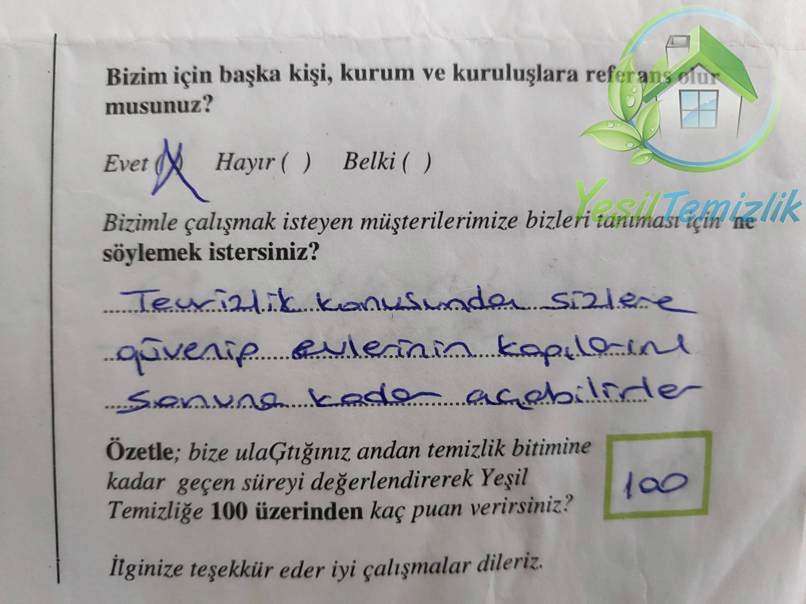 Bizim için başka kişi, kurum ve kuruluşlara referans olur
musunuz?
Evet (X) Hayır ( ) Belki ( )
YeşilTemizlik
Bizimle çalışmak isteyen müşterilerimize bizleri tanıması için ne
söylemek istersiniz?
Temizlik konusunda sizlere
güvenip evlerinin kapılarını
sonuna kadar açabilirler
Özetle; bize ulaĢtığınız andan temizlik bitimine
kadar geçen süreyi değerlendirerek Yeşil
Temizliğe 100 üzerinden kaç puan verirsiniz?
100
İlginize teşekkür eder iyi çalışmalar dileriz.